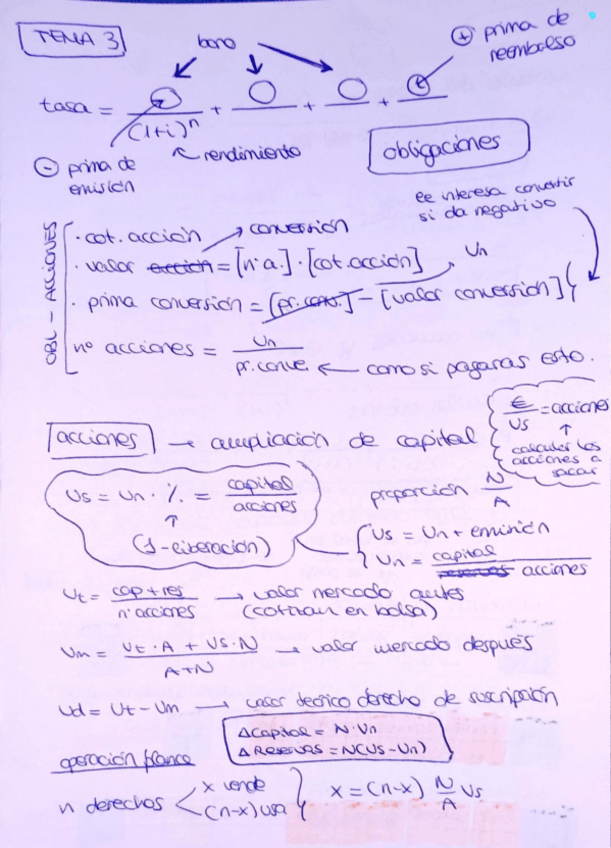 TEMA 3
bono
⊕ prima de reembolso
tasa = ◯/(1+i)^n + ◯ + ◯ + ◯
↖ rendimiento
⊖ prima de emisión
obligaciones
le interesa convertir
si da negativo
OBL - ACCIONES
· cot. acción
conversión
· valor acción = [nºa.] · [cot.acción]
Un
· prima conversión = [pr. conv.] - [valor conversión]
nº acciones = Un / pr.conve. ← como si pagaras esto.
acciones → ampliación de capital
€/Us = acciones
↑
calcular las
acciones a
sacar
Us = Un · % = capital/acciones
↑
(1-liberación)
proporción N/A
Us = Un + emisión
Un = capital / reservas acciones
Ut = cap + res / nºacciones → valor mercado antes
(cotizan en bolsa)
Um = Ut · A + Us · N / A+N → valor mercado después
Ud = Ut - Um → valor teórico derecho de suscripción
Δ Capital = N · Un
Δ Reservas = N(Us - Un)
operación blanca
n derechos < x vende
(n-x) usa
x = (n-x) N/A Us